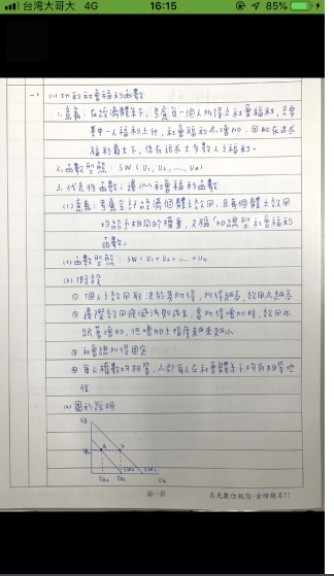 台湾大哥大 4G 16:15 85%
一、 (一)功利社會福利函數
1.意義：在經濟體系下，考慮每一個人所得之社會福利，只要
其中一人福利上升，社會福利亦增加，因此在追求
福利最大下，係在追求大多數人之福利。
2.函數型態：SW(U₁, U₂, ..., Uₙ)
3.代表性函數：邊沁社會福利函數
(1)意義：考慮全部的個體之效用，且每個體之效用
均給予相同的權重，又稱「加總型社會福利
函數。
(2)函數型態：SW = U₁ + U₂ + ... + Uₙ
(3)假設
① 個人之效用取決於其所得，所得越高，效用亦越高
② 邊際效用遞減法則成立，當所得增加時，效用亦
跟著增加，但增加之幅度越來越小
③ 社會總所得固定
④ 每人函數均相等，亦即每人在社會體系下均有相等地
位
(4)圖形說明
UB
A B
UA SW₁
第一頁
高元數位就您-金榜題名!!